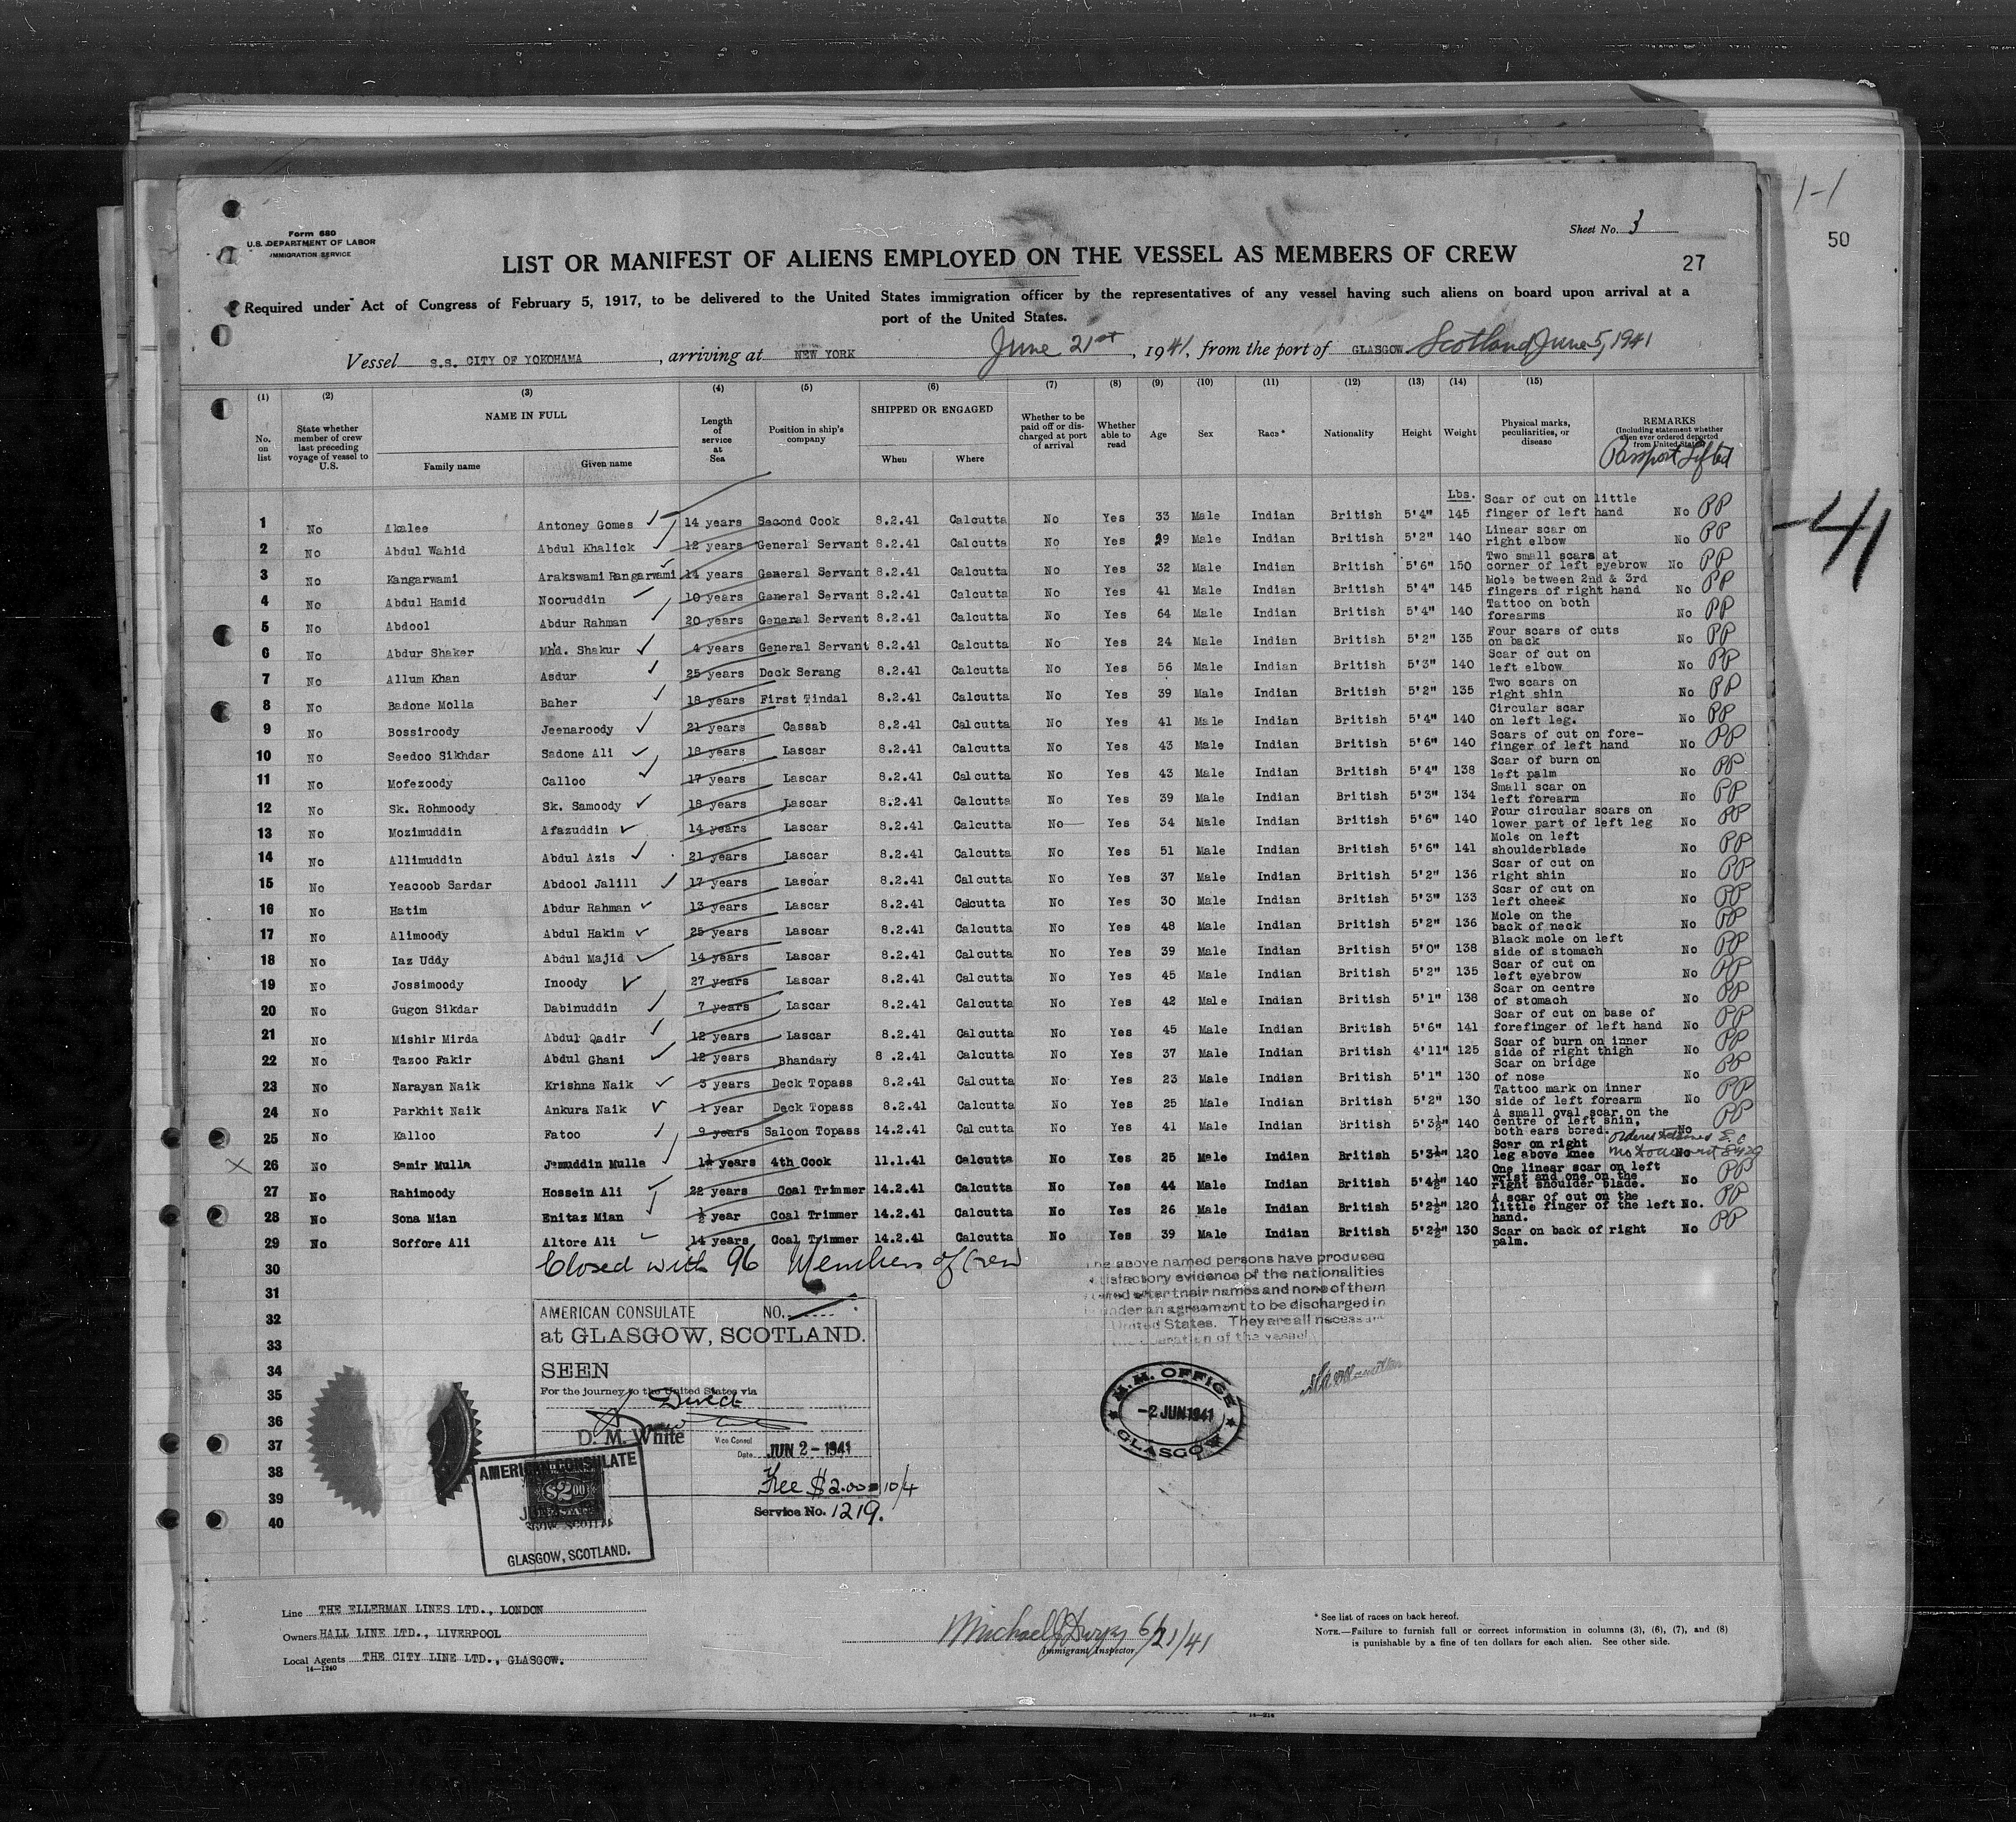 1-1
50
Form 680
U.S. DEPARTMENT OF LABOR
IMMIGRATION SERVICE
Sheet No. 3
LIST OR MANIFEST OF ALIENS EMPLOYED ON THE VESSEL AS MEMBERS OF CREW
27
Required under Act of Congress of February 5, 1917, to be delivered to the United States immigration officer by the representatives of any vessel having such aliens on board upon arrival at a
port of the United States.
Vessel S.S. CITY OF YOKOHAMA, arriving at NEW YORK June 21st, 1941, from the port of GLASGOW Scotland June 5, 1941
(1) (2) (3) (4) (5) (6) (7) (8) (9) (10) (11) (12) (13) (14) (15)
No. on list
State whether member of crew last preceding voyage of vessel to U.S.
NAME IN FULL
Family name
Given name
Length of service at Sea
Position in ship's company
SHIPPED OR ENGAGED
When
Where
Whether to be paid off or discharged at port of arrival
Whether able to read
Age
Sex
Race*
Nationality
Height
Weight
Physical marks, peculiarities, or disease
REMARKS
(Including statement whether alien ever ordered deported from United States)
Passport Lifted
Lbs.
-41
1 No Akalee Antoney Gomes 14 years Second Cook 8.2.41 Calcutta No Yes 33 Male Indian British 5'4" 145 Scar of cut on little finger of left hand No PP
2 No Abdul Wahid Abdul Khalick 12 years General Servant 8.2.41 Calcutta No Yes 29 Male Indian British 5'2" 140 Linear scar on right elbow No PP
3 No Kangarwami Arakswami Rangarwami 14 years General Servant 8.2.41 Calcutta No Yes 32 Male Indian British 5'6" 150 Two small scars at corner of left eyebrow No PP
4 No Abdul Hamid Nooruddin 10 years General Servant 8.2.41 Calcutta No Yes 41 Male Indian British 5'4" 145 Mole between 2nd & 3rd fingers of right hand No PP
5 No Abdool Abdur Rahman 20 years General Servant 8.2.41 Calcutta No Yes 64 Male Indian British 5'4" 140 Tattoo on both forearms No PP
6 No Abdur Shaker Mhd. Shakur 4 years General Servant 8.2.41 Calcutta No Yes 24 Male Indian British 5'2" 135 Four scars of cuts on back No PP
7 No Allum Khan Asdur 25 years Deck Serang 8.2.41 Calcutta No Yes 56 Male Indian British 5'3" 140 Scar of cut on left elbow No PP
8 No Badone Molla Baher 18 years First Tindal 8.2.41 Calcutta No Yes 39 Male Indian British 5'2" 135 Two scars on right shin No PP
9 No Bossiroody Jeenaroody 21 years Cassab 8.2.41 Calcutta No Yes 41 Male Indian British 5'4" 140 Circular scar on left leg. No PP
10 No Seedoo Sikhdar Sadone Ali 18 years Lascar 8.2.41 Calcutta No Yes 43 Male Indian British 5'6" 140 Scars of cut on fore-finger of left hand No PP
11 No Mofezoody Calloo 17 years Lascar 8.2.41 Calcutta No Yes 43 Male Indian British 5'4" 138 Scar of burn on left palm No PP
12 No Sk. Rohmoody Sk. Samoody 18 years Lascar 8.2.41 Calcutta No Yes 39 Male Indian British 5'3" 134 Small scar on left forearm No PP
13 No Mozimuddin Afazuddin 14 years Lascar 8.2.41 Calcutta No Yes 34 Male Indian British 5'6" 140 Four circular scars on lower part of left leg No PP
14 No Allimuddin Abdul Azis 21 years Lascar 8.2.41 Calcutta No Yes 51 Male Indian British 5'6" 141 Mole on left shoulderblade No PP
15 No Yeacoob Sardar Abdool Jalill 17 years Lascar 8.2.41 Calcutta No Yes 37 Male Indian British 5'2" 136 Scar of cut on right shin No PP
16 No Hatim Abdur Rahman 13 years Lascar 8.2.41 Calcutta No Yes 30 Male Indian British 5'3" 133 Scar of cut on left cheek No PP
17 No Alimoody Abdul Hakim 25 years Lascar 8.2.41 Calcutta No Yes 48 Male Indian British 5'2" 136 Mole on the back of neck No PP
18 No Iaz Uddy Abdul Majid 14 years Lascar 8.2.41 Calcutta No Yes 39 Male Indian British 5'0" 138 Black mole on left side of stomach No PP
19 No Jossimoody Inoody 27 years Lascar 8.2.41 Calcutta No Yes 45 Male Indian British 5'2" 135 Scar of cut on left eyebrow No PP
20 No Gugon Sikdar Dabinuddin 7 years Lascar 8.2.41 Calcutta No Yes 42 Male Indian British 5'1" 138 Scar on centre of stomach No PP
21 No Mishir Mirda Abdul Qadir 12 years Lascar 8.2.41 Calcutta No Yes 45 Male Indian British 5'6" 141 Scar of cut on base of forefinger of left hand No PP
22 No Tazoo Fakir Abdul Ghani 12 years Bhandary 8 .2.41 Calcutta No Yes 37 Male Indian British 4'11" 125 Scar of burn on inner side of right thigh No PP
23 No Narayan Naik Krishna Naik 3 years Deck Topass 8.2.41 Calcutta No Yes 23 Male Indian British 5'1" 130 Scar on bridge of nose No PP
24 No Parkhit Naik Ankura Naik 1 year Deck Topass 8.2.41 Calcutta No Yes 25 Male Indian British 5'2" 130 Tattoo mark on inner side of left forearm No PP
25 No Kalloo Fatoo 9 years Saloon Topass 14.2.41 Calcutta No Yes 41 Male Indian British 5'3½" 140 A small oval scar on the centre of left shin, both ears bored. No PP
X 26 No Samir Mulla Jamuddin Mulla 1¼ years 4th Cook 11.1.41 Calcutta No Yes 25 Male Indian British 5'3½" 120 Scar on right leg above knee No Ordered
27 No Rahimoody Hossein Ali 22 years Coal Trimmer 14.2.41 Calcutta No Yes 44 Male Indian British 5'4½" 140 One linear scar on left wrist and one on the right shoulder blade. No PP
28 No Sona Mian Enitaz Mian ½ year Coal Trimmer 14.2.41 Calcutta No Yes 26 Male Indian British 5'2½" 120 A scar of cut on the little finger of the left hand. No. PP
29 No Soffore Ali Altore Ali 14 years Coal Trimmer 14.2.41 Calcutta No Yes 39 Male Indian British 5'2½" 130 Scar on back of right palm. No PP
30 Closed with 96 Members of Crew
31
32
33
34
35
36
37
38
39
40
above named persons have produced
satisfactory evidence of the nationalities
after their names and none of them
under an agreement to be discharged in
United States. They are all necessary
operation of the vessel
AMERICAN CONSULATE NO.
at GLASGOW, SCOTLAND.
SEEN
For the journey to the United States via
Direct
D. M. White
Vice Consul
Date JUN 2 - 1941
Fee $2.00 = 10/4
Service No. 1219.
AMERICAN CONSULATE
$2.00
GLASGOW, SCOTLAND.
M.M. OFFICE
-2 JUN 1941
GLASGOW
Line THE ELLERMAN LINES LTD., LONDON
Owners HALL LINE LTD., LIVERPOOL
Local Agents THE CITY LINE LTD., GLASGOW.
14-1240
Michael 6/21/41
Immigrant Inspector
* See list of races on back hereof.
NOTE.—Failure to furnish full or correct information in columns (3), (6), (7), and (8)
is punishable by a fine of ten dollars for each alien. See other side.